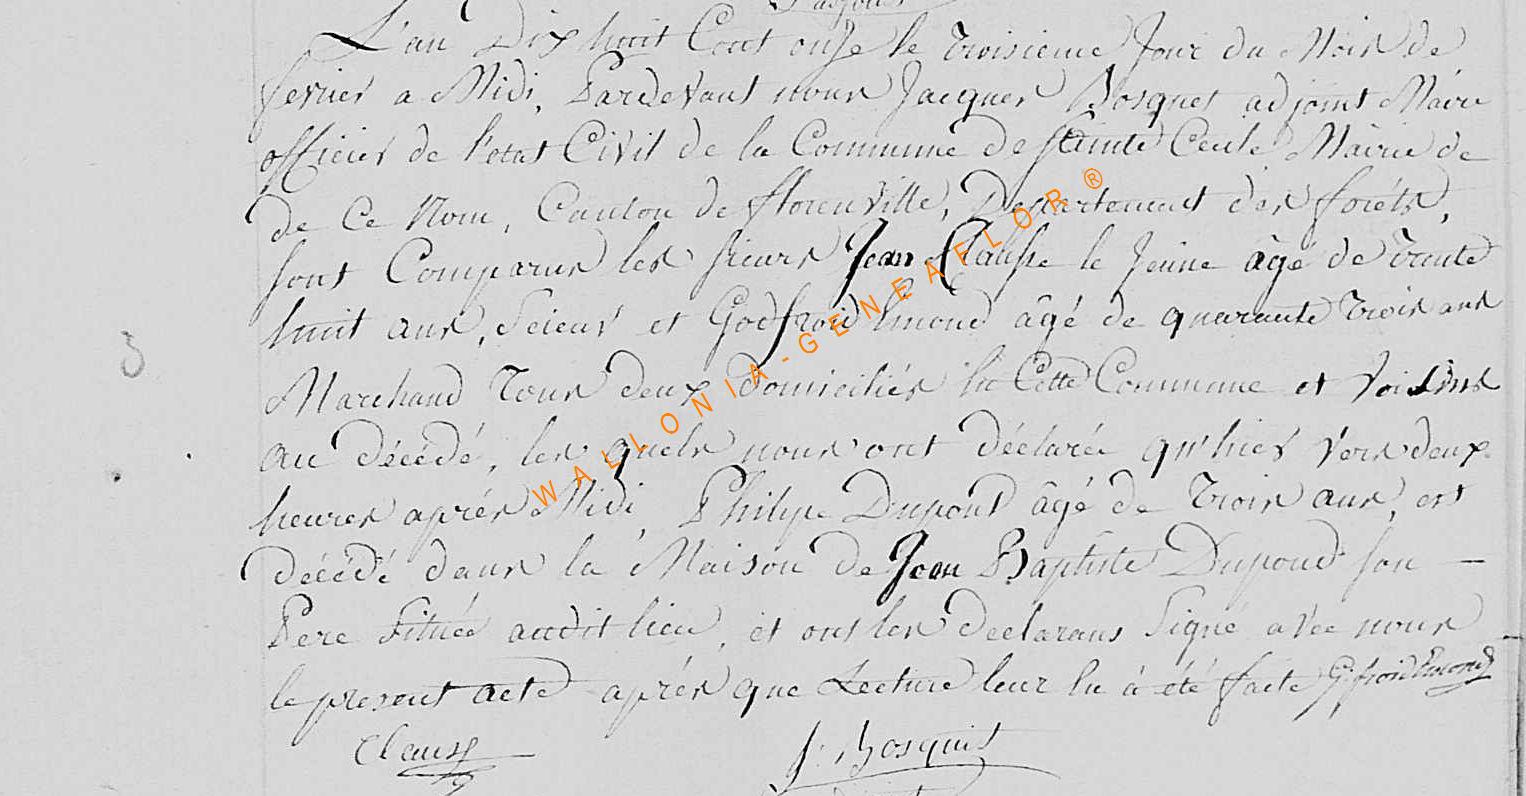 L'an Dix huit Cent onze le troisieme Jour du Mois de
fevrier a Midi, Pardevant nous Jacques Bosquet adjoint Maire
officier de l'etat Civil de la Commune de Sainte Cecile Mairie de
de Ce Nom, Canton de florenville, Departement des forêts,
sont Comparus les sieurs Jean Clausse le Jeune âgé de trente
huit ans, Scieur et Godfroid Emond âgé de quarante trois ans
Marchand tous deux domiciliés en Cette Commune et Voisins
au décédé, les quels nous ont déclaré qu'hier vers deux
heures aprés Midi, Philipe Dupont âgé de trois ans, est
décédé dans la Maison de Jean Baptiste Dupond son —
Pere Située audit lieu, et ont les declarans Signé avec nous
le present acte aprés que Lecture leur en à été faite G.froid Emond
Clausse
J. Bosquet
3
WALLONIA-GENEAFLOR®